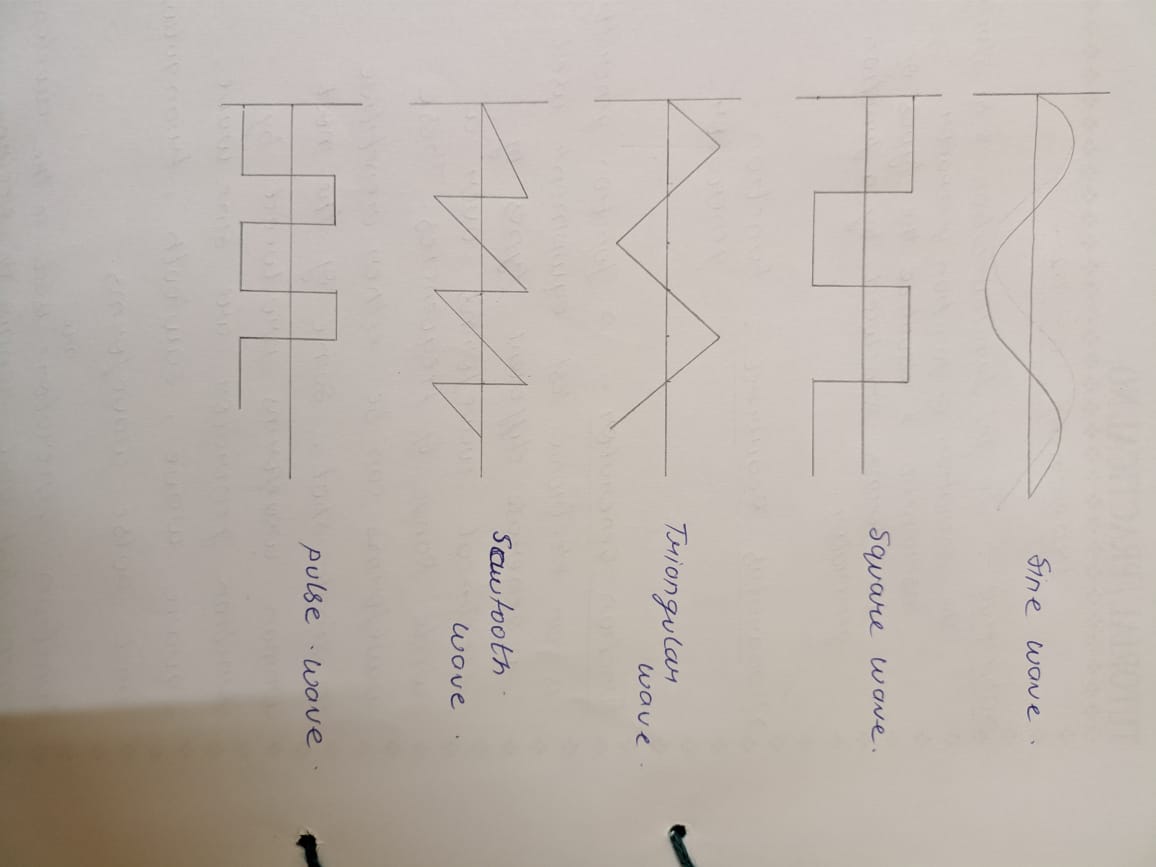 Sine wave.
Square wave.
Triangular
wave.
Sawtooth.
wave.
pulse.wave.